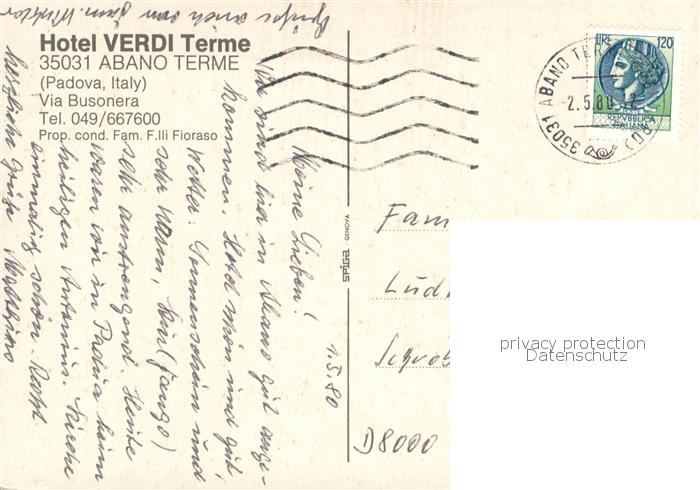 Hotel VERDI Terme
35031 ABANO TERME
(Padova, Italy)
Via Busonera
Tel. 049/667600
Prop. cond. Fam. F.lli Fioraso
LIRE 120
REPVBBLICA
ITALIANA
35031 ABANO TERME (PD)
-2.5.80
1.5.80
Meine Lieben!
Wir sind hier in Abano gut ange-
kommen. Hotel schön und gut
Wetter: Sonnenschein und
sehr warm, Kur (fango)
sehr anstrengend. Heute
waren wir in Padua beim
heiligen Antonius. Kirche
einmalig schön. Recht
herzliche Grüße
Grüße auch von Fam.
spiga
GENOVA
Fam
D8000
privacy protection
Datenschutz